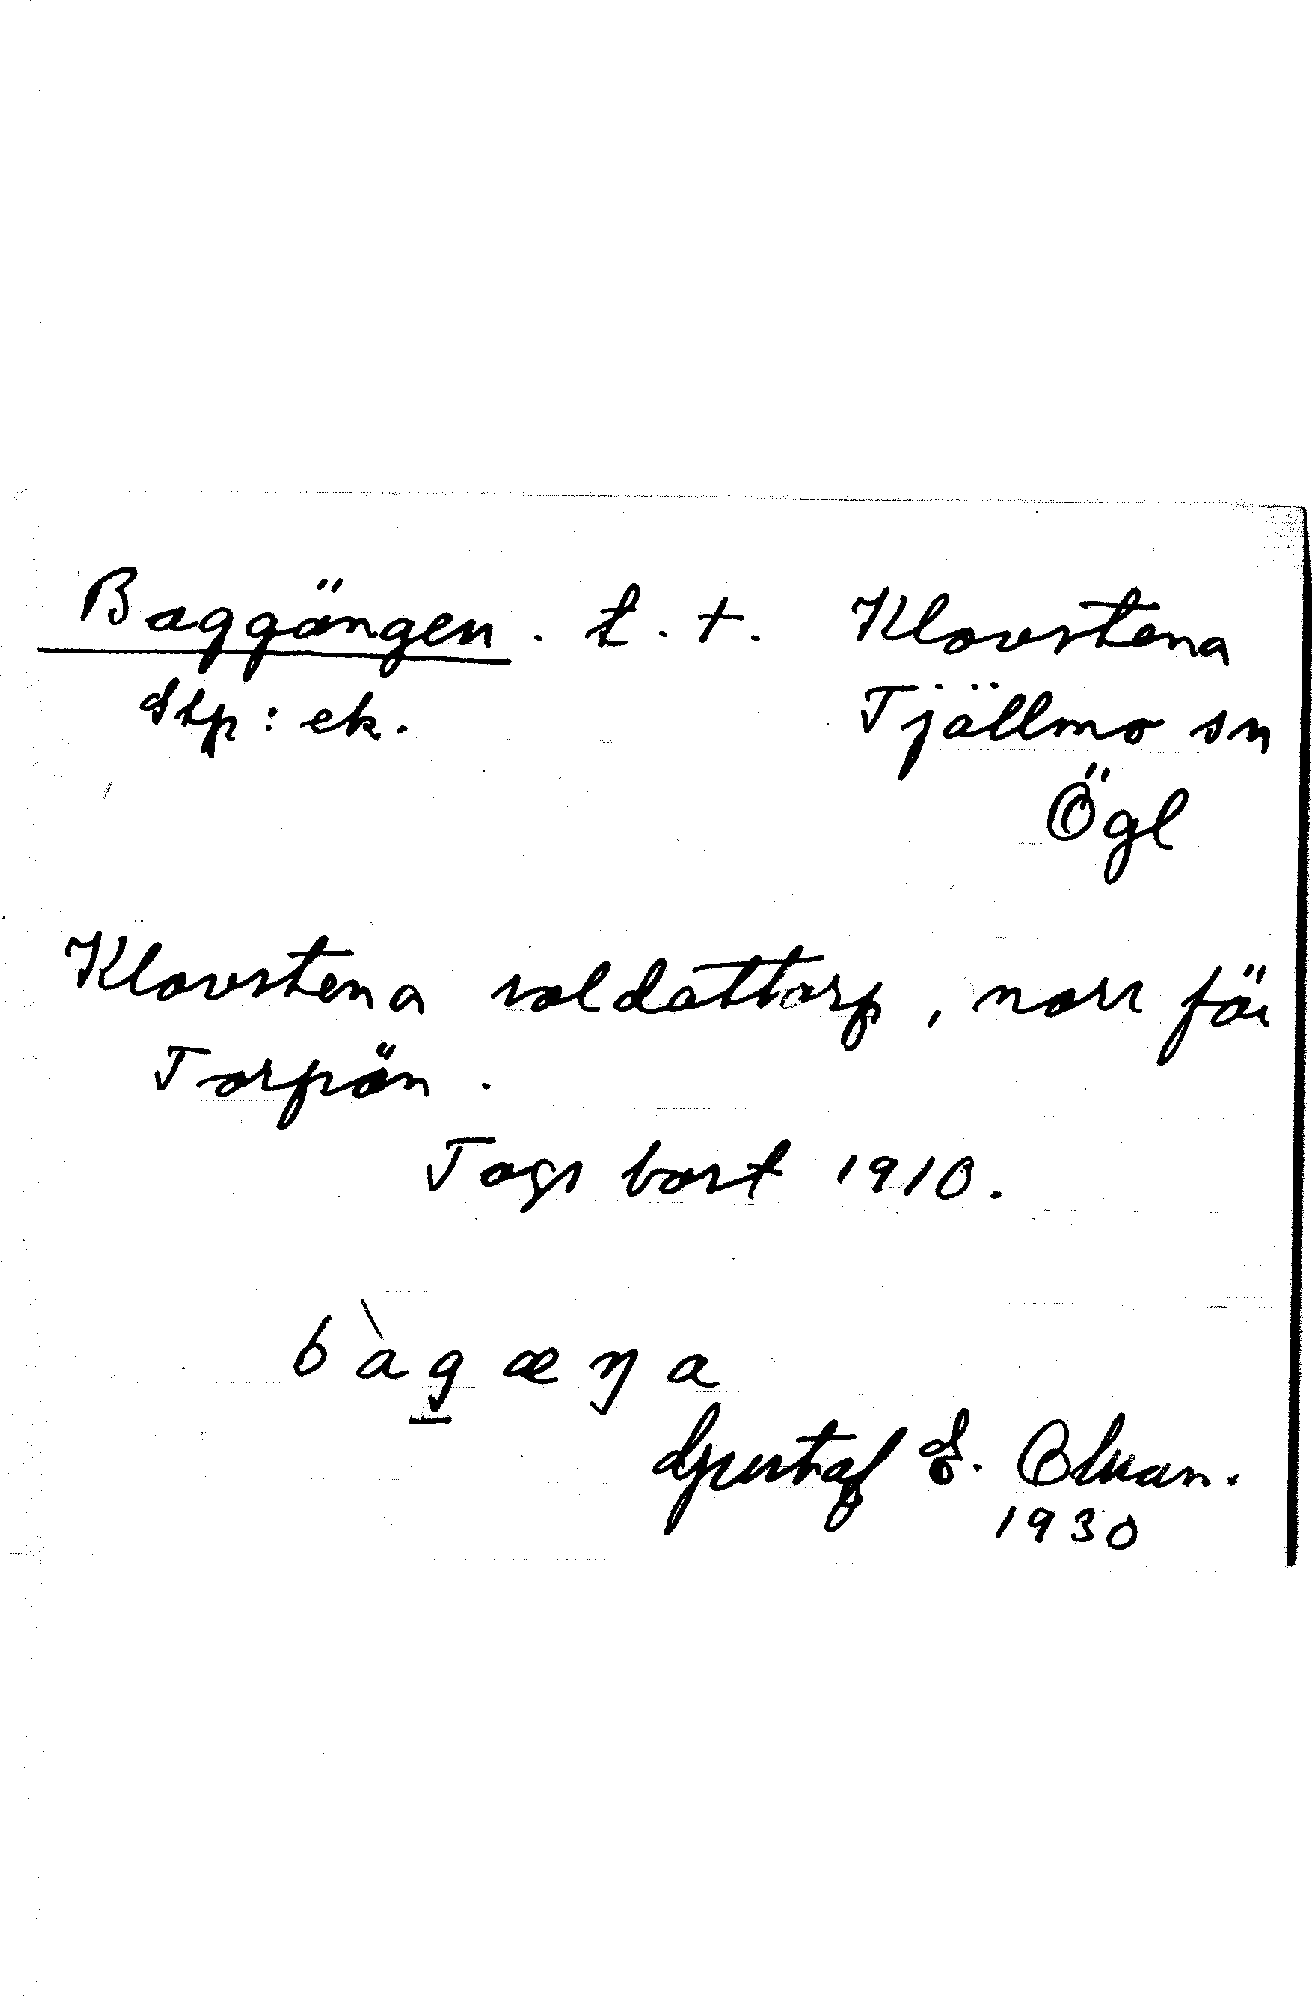 Baggängen. t. +. Klovstena
Stp: ek. Tjällmo sn
Ögl
Klovstena soldattorp, norr för
Torpön.
Togs bort 1910.
bàgæŋa
Gustaf E. Olsson.
1930